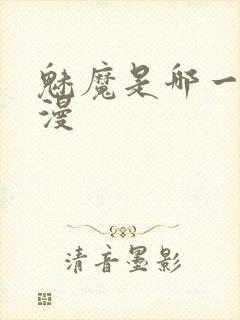 魅魔是哪一
漫
清音墨影